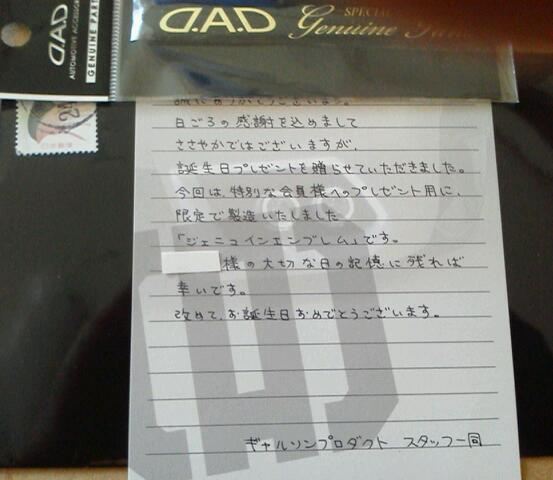 D.A.D
AUTOMOTIVE ACCESSOR
GENUINE PARTS
D.A.D
SPECIAL
Genuine
誠にありがとうございます。
日ごろの感謝を込めまして
ささやかではございますが、
誕生日プレゼントを贈らせていただきました。
今回は、特別な会員様へのプレゼント用に、
限定で製造いたしました
「ジェニュインエンブレム」です。
様の大切な日の記憶に残れば
幸いです。
改めて、お誕生日おめでとうございます。
ギャルソンプロダクト スタッフ一同